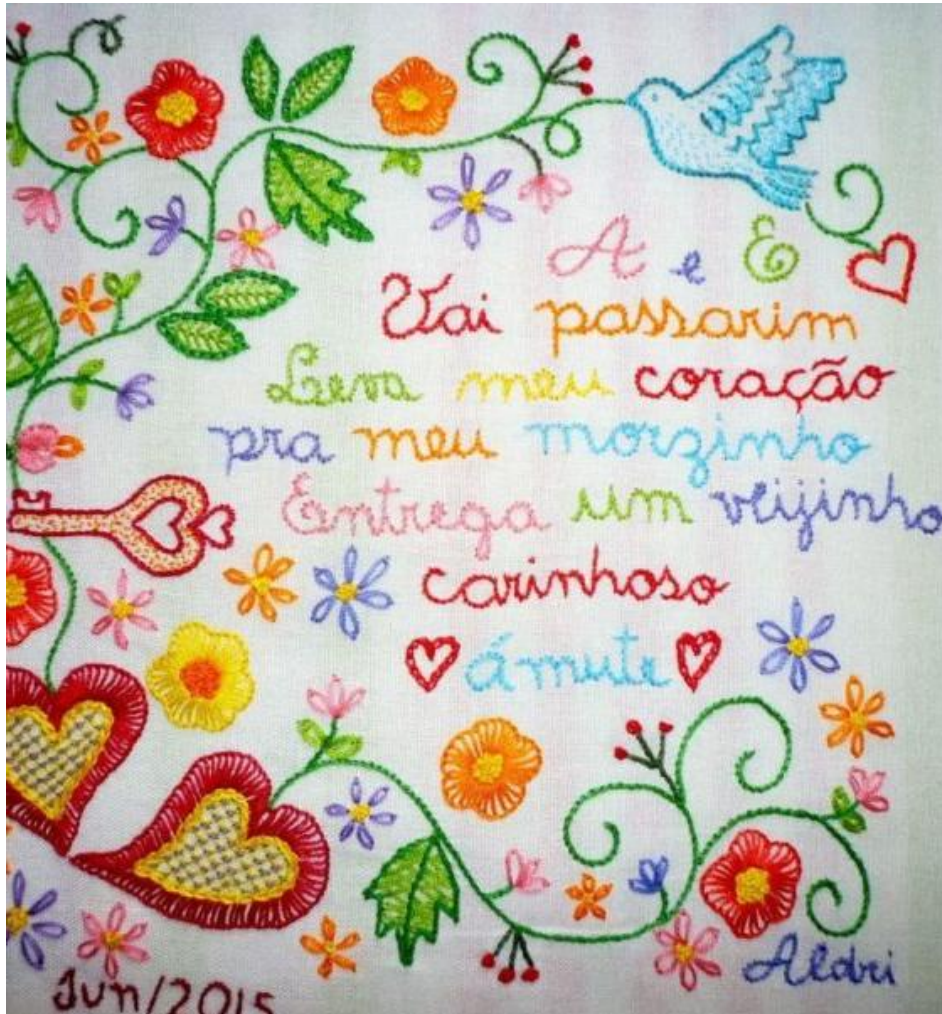 A e E
Vai passarim
Leva meu coração
pra meu morzinho
Entrega um veijinho
carinhoso
ámute
Aldri
Jun/2015